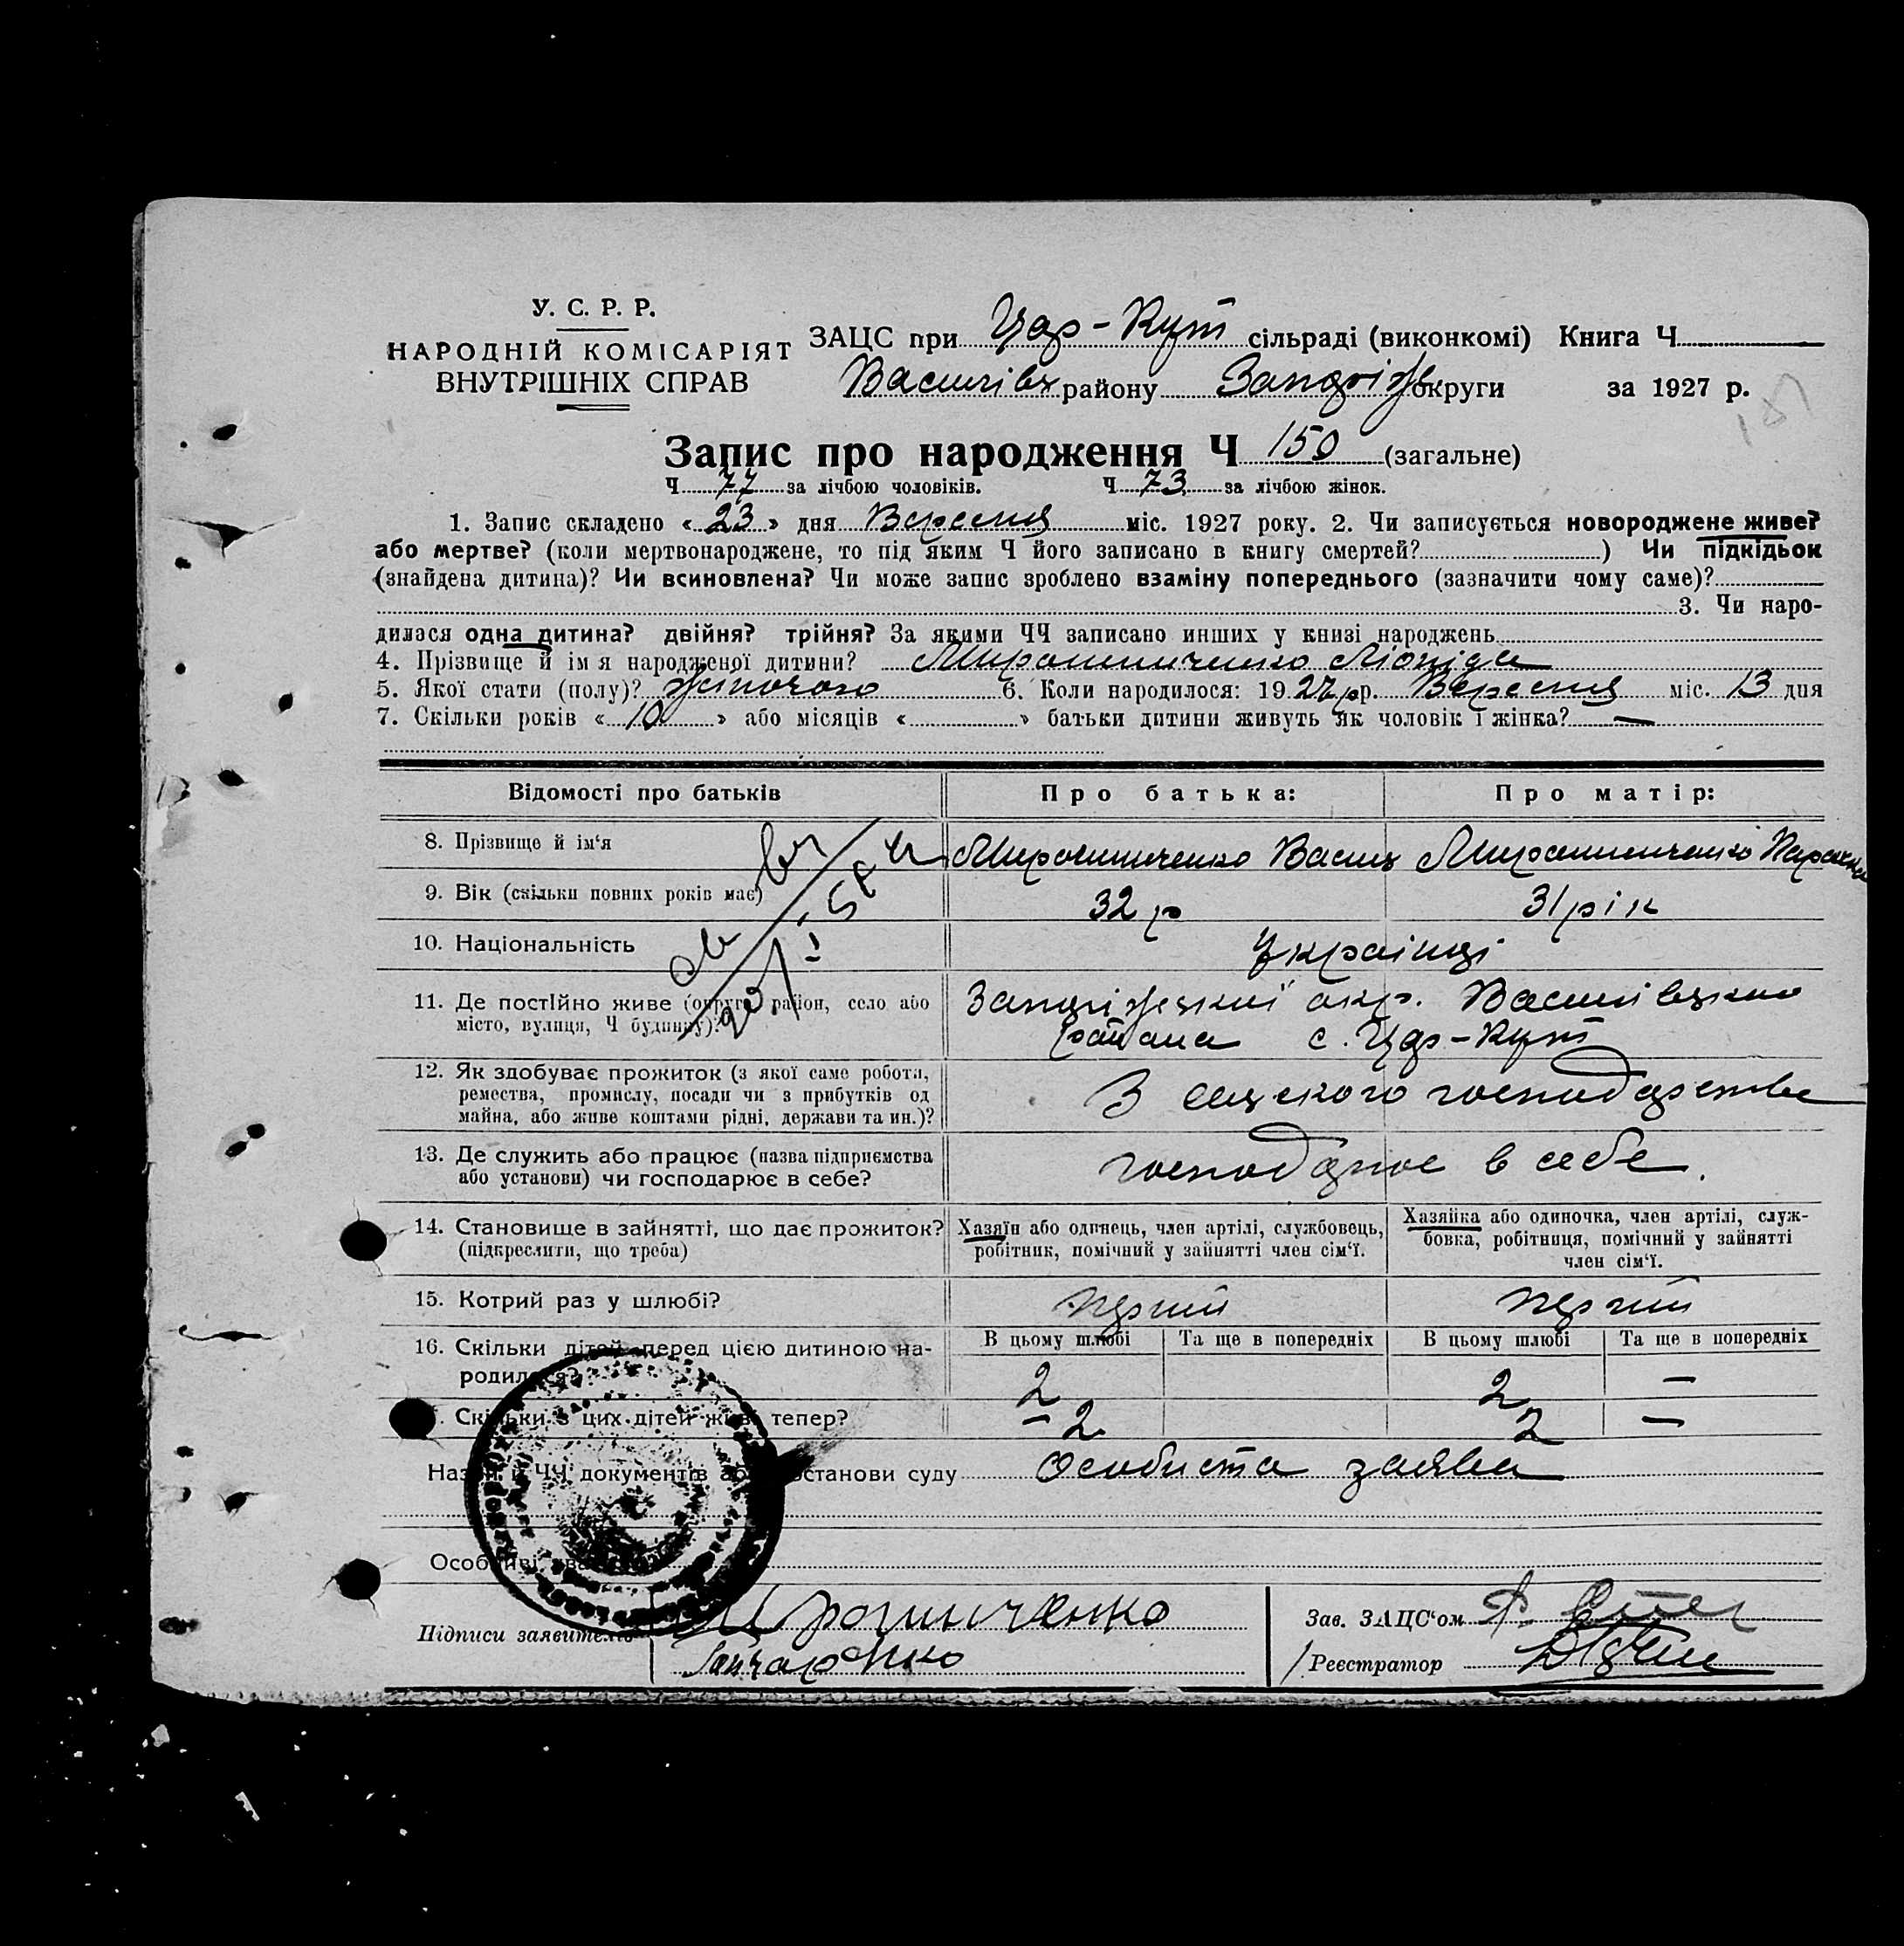 У. С. Р. Р.
НАРОДНІЙ КОМІСАРІЯТ
ВНУТРІШНІХ СПРАВ
ЗАЦС при Цар-Кут сільраді (виконкомі) Книга Ч
Василівк району Запоріж. округи за 1927 р.
Запис про народження Ч 150 (загальне)
Ч 77 за лічбою чоловіків. Ч 73 за лічбою жінок.
1. Запис складено « 23 » дня Вересня міс. 1927 року. 2. Чи записується новороджене живе?
або мертве? (коли мертвонароджене, то під яким Ч його записано в книгу смертей? ) Чи підкідьок
(знайдена дитина)? Чи всиновлена? Чи може запис зроблено взаміну попереднього (зазначити чому саме)?
3. Чи наро-
дилася одна дитина? двійня? трійня? За якими ЧЧ записано инших у книзі народжень
4. Прізвище й ім я народженої дитини? Мирошниченко Ліоніда
5. Якої стати (полу)? Жіночого 6. Коли народилося: 1927 р. Вересня міс. 13 дня
7. Скільки років « 10 » або місяців « » батьки дитини живуть як чоловік і жінка? —
Відомості про батьків
Про батька:
Про матір:
8. Прізвище й ім'я
Мирошниченко Васил
Мирошниченко Параска
9. Вік (скільки повних років має)
32 р
31 рік
10. Національність
Українці
11. Де постійно живе (округа, район, село або
місто, вулиця, Ч будинку)?
Запоріжської окр. Василівского
району с. Цар-Кут
12. Як здобуває прожиток (з якої саме роботи,
ремества, промислу, посади чи з прибутків од
майна, або живе коштами рідні, держави та ин.)?
З сельского господарства
13. Де служить або працює (назва підприємства
або установи) чи господарює в себе?
господарює в себе.
14. Становище в зайнятті, що дає прожиток?
(підкреслити, що треба)
Хазяїн або одинець, член артілі, службовець,
робітник, помічний у зайнятті член сім'ї.
Хазяйка або одиночка, член артілі, служ-
бовка, робітниця, помічний у зайнятті
член сім'ї.
15. Котрий раз у шлюбі?
перший
перший
16. Скільки дітей перед цією дитиною на-
родилося?
В цьому шлюбі
Та ще в попередніх
В цьому шлюбі
Та ще в попередніх
2
2 —
Скільки з цих дітей живі тепер?
2
2 —
Назви й ЧЧ документів або постанови суду Особиста заява
Особливі
Підписи заявителів
Мірошниченко
Гончаренко
Зав. ЗАЦС'ом
Реєстратор